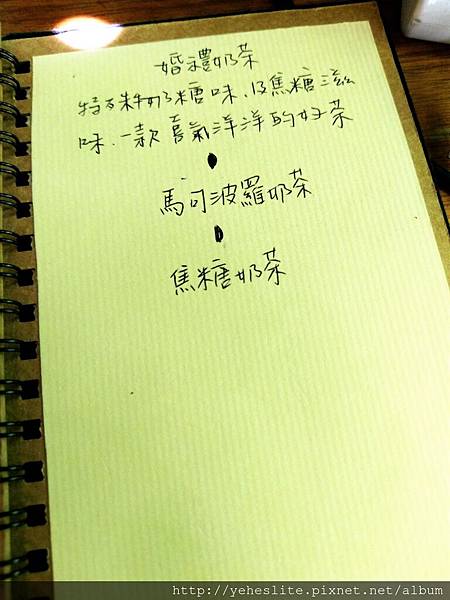 婚禮奶茶
特有牛奶糖味、似焦糖滋
味、一款喜氣洋洋的好茶
馬可波羅奶茶
焦糖奶茶
http://yeheslite.pixnet.net/album